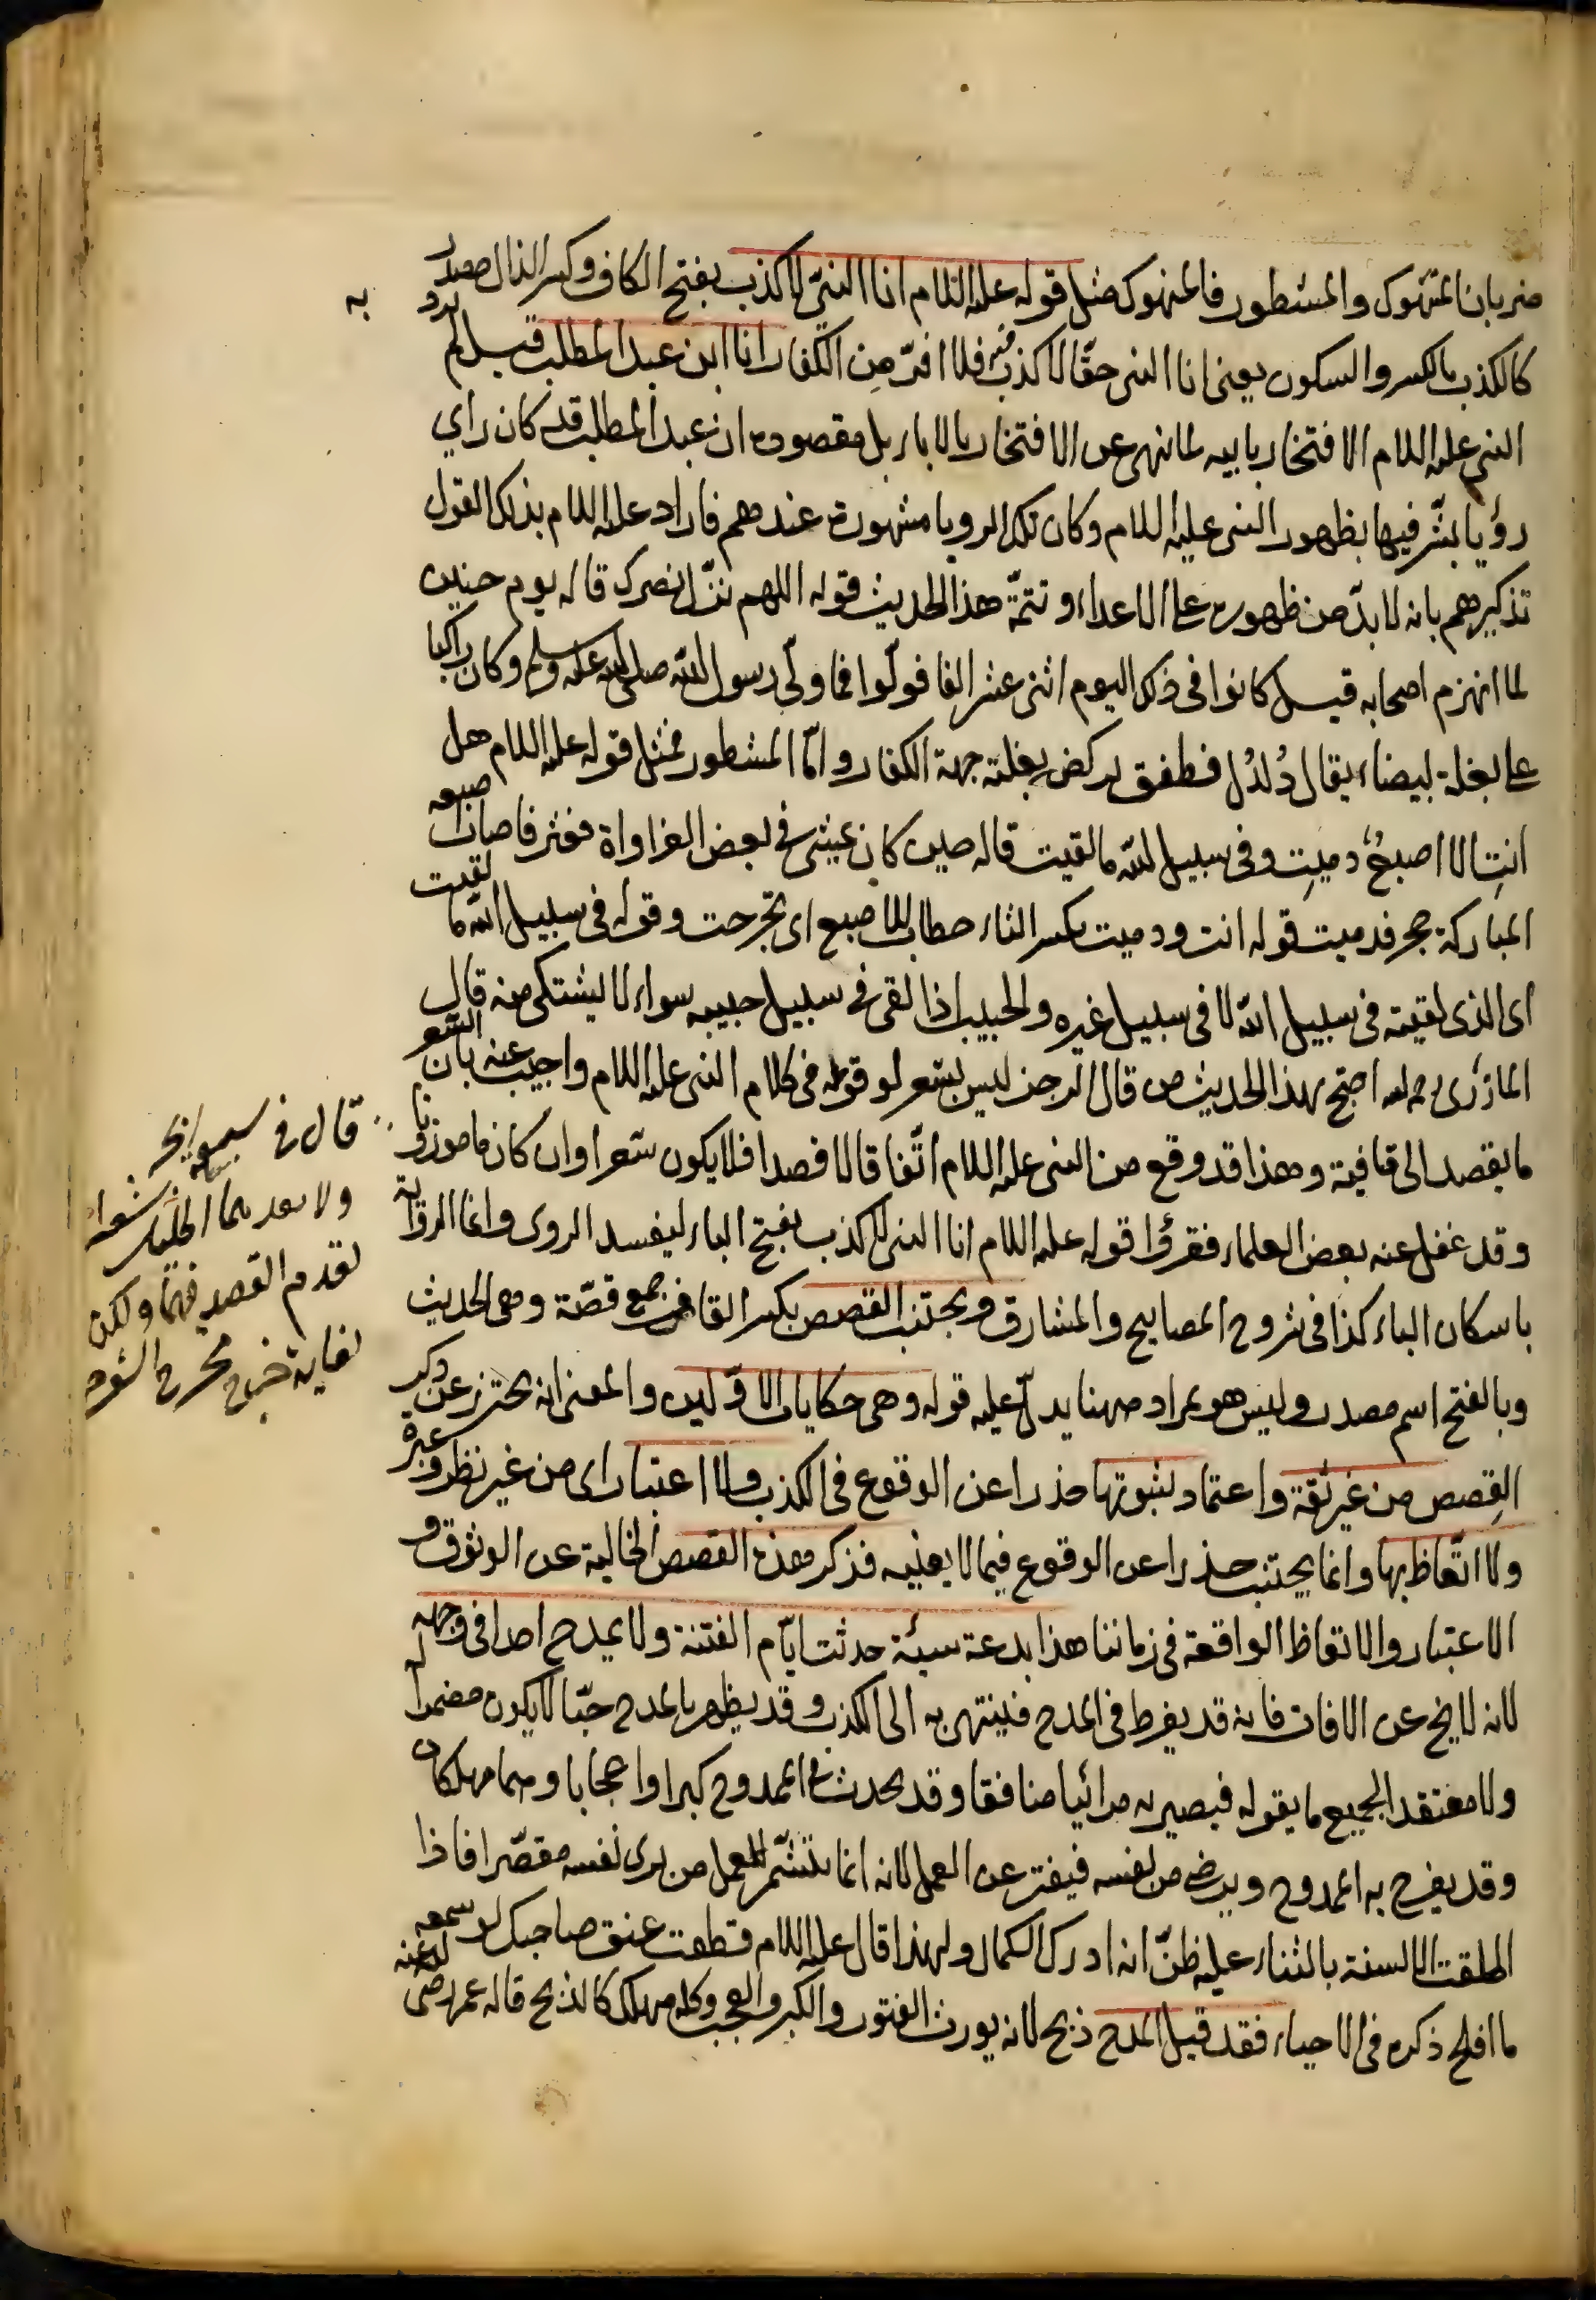 ضربان المنهوك والمشطور فالمنهوك مثل قوله عليه السلام انا النبي لا كذب بفتح الكاف وكسر الذال مصدر
كالكذب بالكسر والسكون يعني انا النبي حقا لا كذب فيه فلا افر من الكفار انا ابن عبد المطلب قيل لم يرد به
النبي عليه السلام الافتخار بابيه لما نهى عن الافتخار بالاباء بل مقصوده ان عبد المطلب قد كان راي
رؤيا بشر فيها بظهور النبي عليه السلام وكان تلك الرويا مشهورة عندهم فاراد عليه السلام بذلك القول
تذكيرهم بانه لا بد من ظهوره على الاعداء وتتمة هذا الحديث قوله اللهم نزل نصرك قاله يوم حنين
لما انهزم اصحابه قيل كانوا في ذلك اليوم اثنى عشر الفا فولوا فما ولى رسول الله صلى الله عليه وسلم وكان راكبا
على بغلة بيضاء يقال دُلدُل فطفق يركض بغلته جهة الكفار واما المشطور فمثل قوله عليه السلام هل
انتِ الا اصبعٌ دميتِ وفي سبيل الله ما لقيت قاله حين كان يمشي في بعض الغزاواة فعثر فاصاب اصبعه
المباركة حجر فدميت قوله انت ودميت بكسر التاء خطاب للاصبع اي تجرحت وقوله في سبيل الله ما لقيت
اى الذى لقيته في سبيل الله لا في سبيل غيره والحبيب اذا لقى في سبيل حبيبه سواء لا يشتكى منه قال
المازرى رحمه الله احتج بهذا الحديث من قال الرجز ليس بشعر لوقوعه في كلام النبي عليه السلام واجيب عنه بان الشعر
ما يقصد الى قافية وهذا قد وقع من النبي عليه السلام اتفاقا لا قصدا فلا يكون شعرا وان كان كلاما موزونا
وقد غفل عنه بعض العلماء فقرؤا قوله عليه السلام انا النبي لا كذب بفتح الباء ليفسد الروى وانما الرواية
باسكان الباء كذا في شروح المصابيح والمشارق ويجتنب القصص بكسر القاف جمع قصة وهي الحديث
وبالفتح اسم مصدر وليس هو بمراد ههنا يدل عليه قوله وهى حكايات الاولين والمعنى انه يحترز عن ذكر
القِصص من غير ثقة واعتماد بثبوتها حذرا عن الوقوع في الكذب ولا اعتبار اى من غير نظر وعبرة
ولا اتعاظ بها وانما يجتنب حذرا عن الوقوع فيما لا يعنيه فذكر هذه القصص الخالية عن الوثوق و
الاعتبار والاتعاظ الواقعة في زماننا هذا بدعة سيئة حدثت ايام الفتنة ولا يمدح احدا في وجهه
لانه لا يخ عن الافات فانه قد يفرط في المدح فينتهى به الى الكذب وقد يظهر بالمدح حبا لا يكون مضمرا له
ولا معتقد الجميع ما يقوله فيصير به مرائيا منافقا وقد يحدث في الممدوح كبرا واعجابا وهما مهلكان
وقد يفرح به الممدوح ويرضى من نفسه فيفتر عن العمل لانه انما يتشمر للعمل من يرى نفسه مقصرا فاذا
اطلقت الالسنة بالثناء عليه ظن انه ادرك الكمال ولهذا قال عليه السلام قطعت عنق صاحبك لو سمعه
ما افلح ذكره في الاحياء فقد قيل المدح ذبح لانه يورث الفتور والكبر والعجب وكله مهلك كالذبح قاله عمر رضى الله عنه
قال في
ولا
تقدم القصد فيهما ولكن